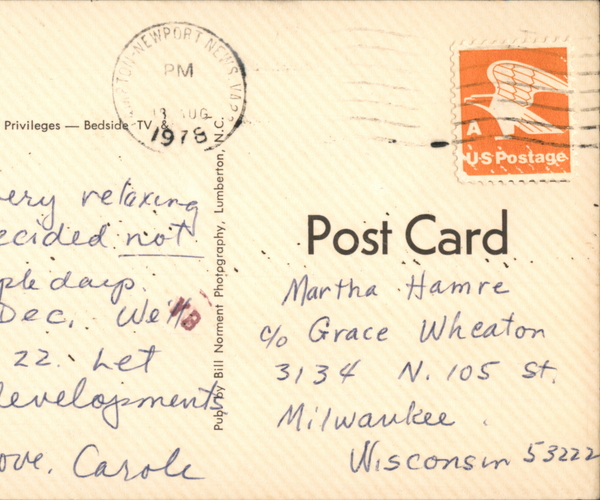 HAMPTON-NEWPORT NEWS, VA
PM
13 AUG
1978
A
U·S Postage
Privileges — Bedside TV &
Publ. by Bill Norment Photography, Lumberton, N.C.
ery relaxing
ecided not
ple days.
Dec. We'll
22. Let
developments
ove, Carole
Post Card
Martha Hamre
c/o Grace Wheaton
3134 N. 105 St.
Milwaukee
Wisconsin 53222